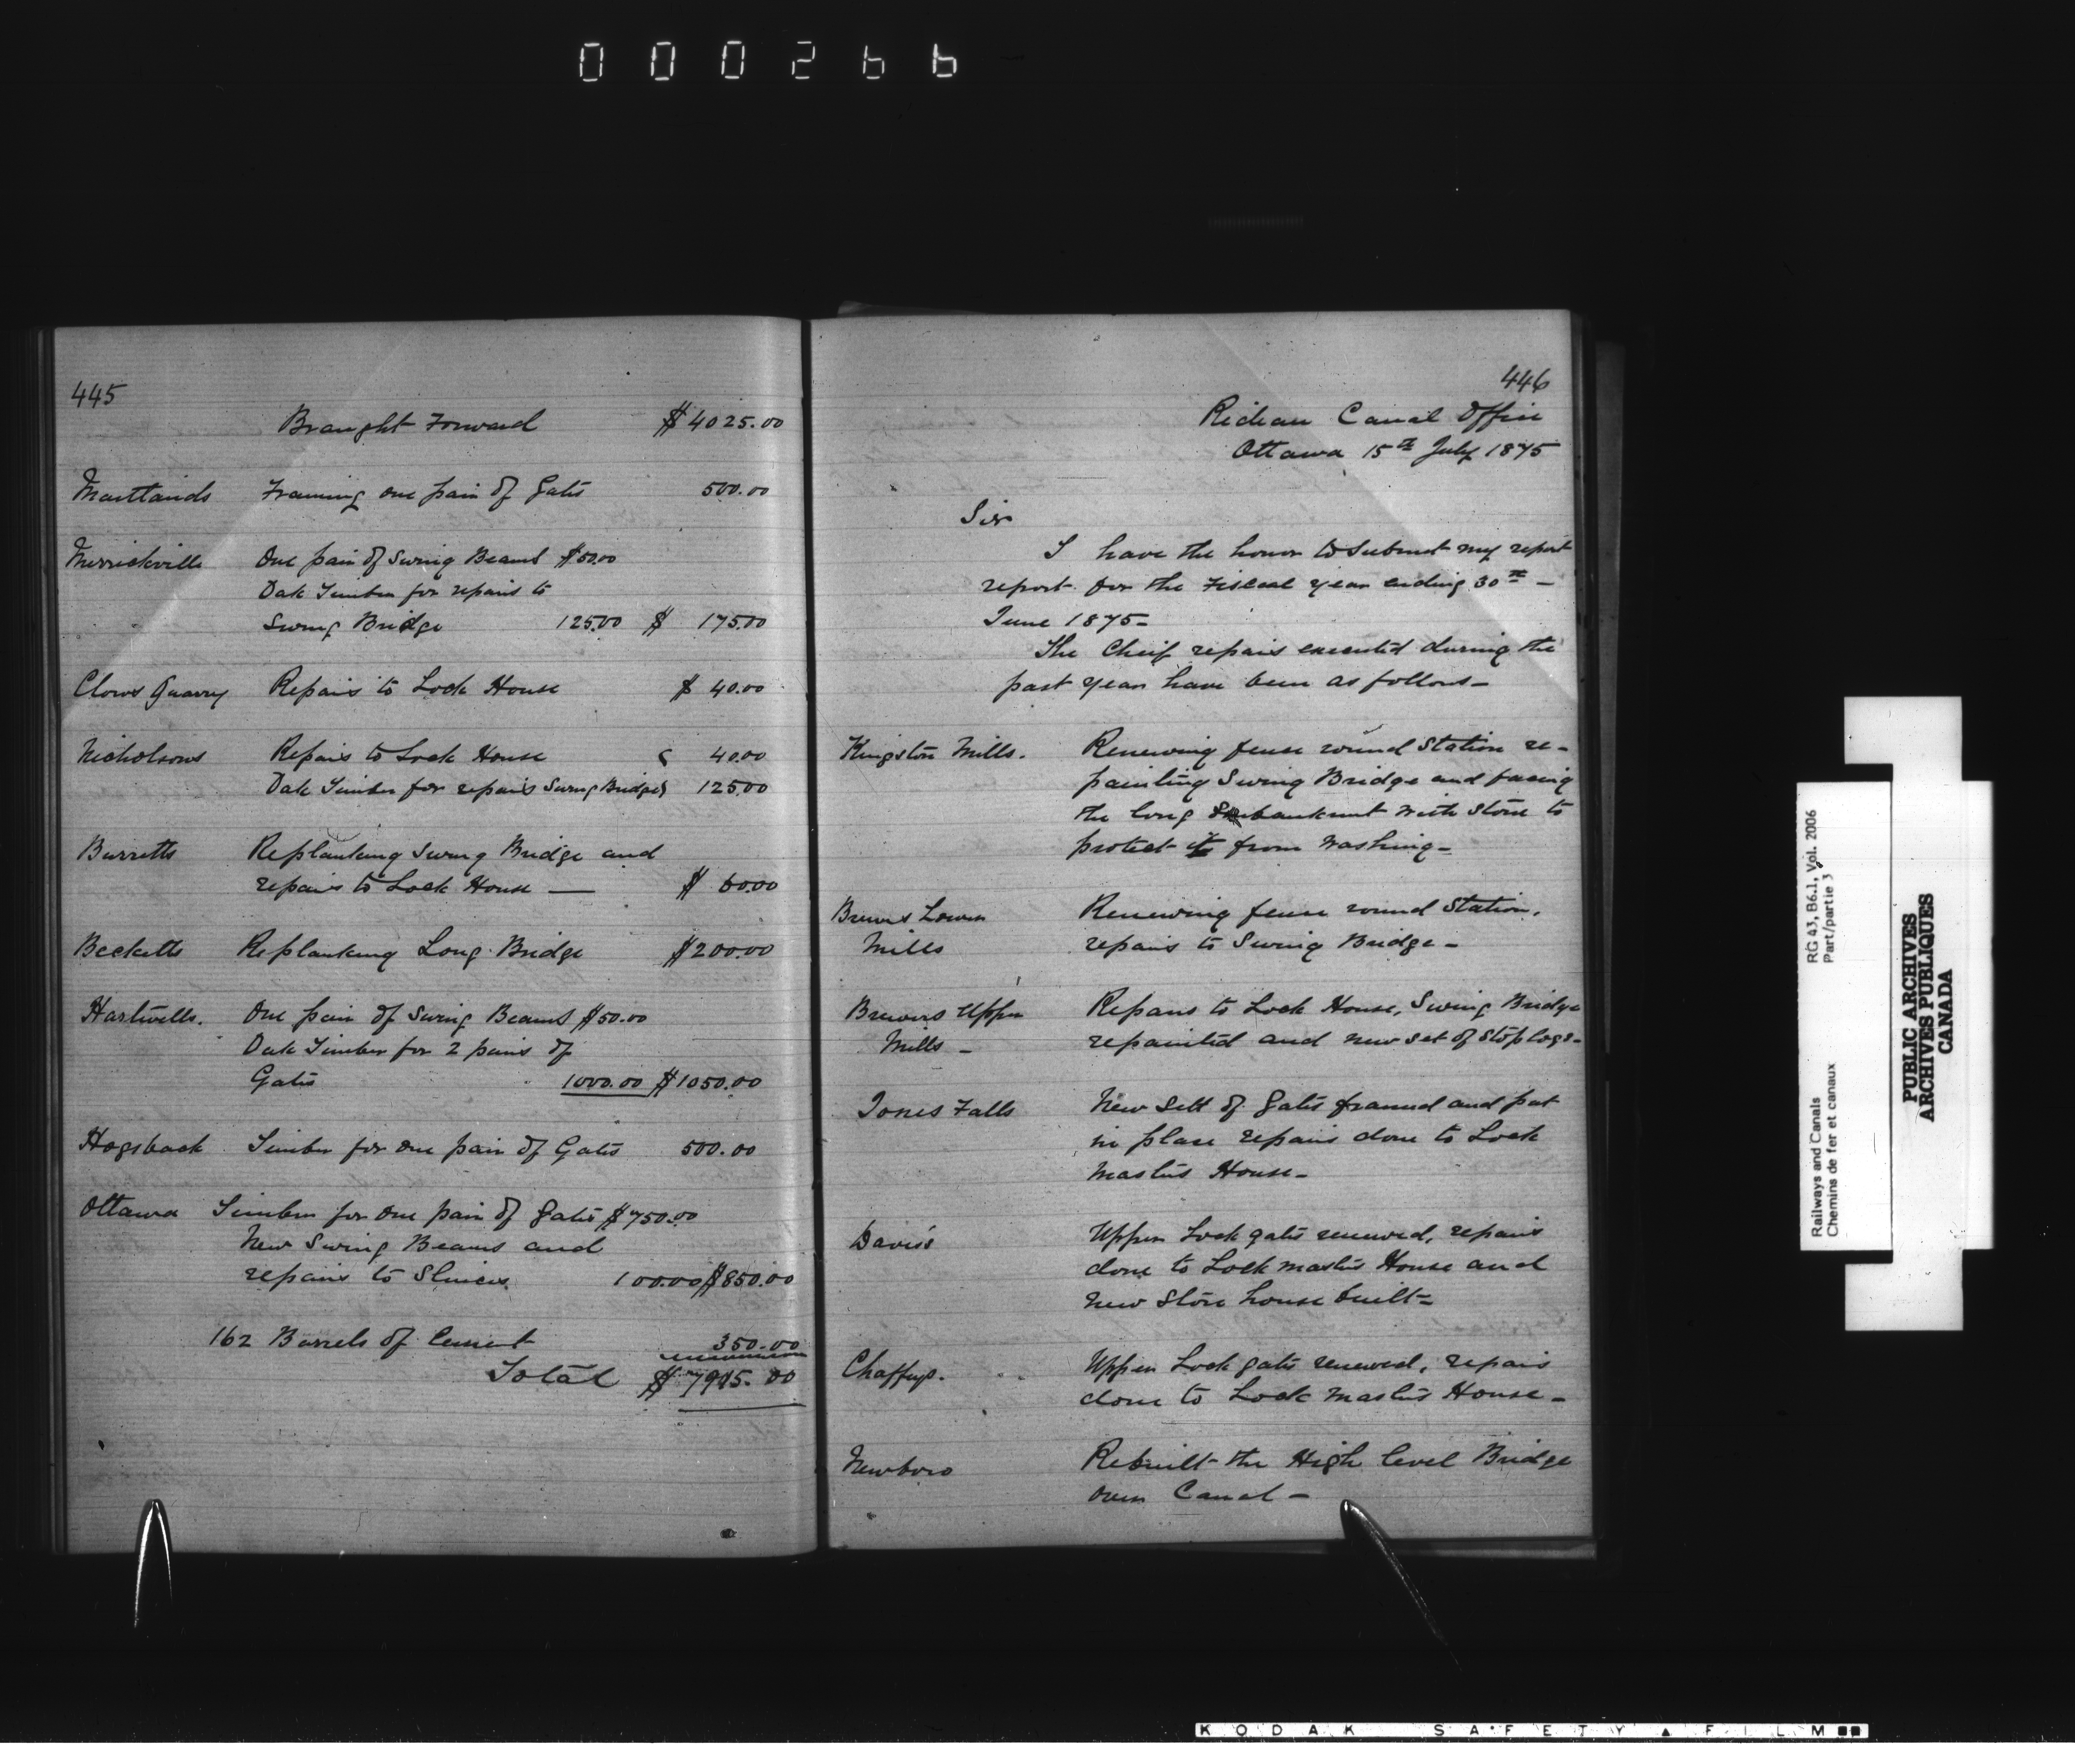 000266
445
Brought Forward $4025.00
Maitlands Framing one pair of Gates 500.00
Merrickville One pair of Swing Beams $50.00
Oak Timber for repairs to
Swing Bridge 125.00 $ 175.00
Clows Quarry Repairs to Lock House $ 40.00
Nicholsons Repairs to Lock House 40.00
Oak Timber for repairs Swing Bridge 125.00
Burretts Replanking Swing Bridge and
repairs to Lock House — $ 60.00
Becketts Replanking Long Bridge $200.00
Hartwells. One pair of Swing Beams $50.00
Oak Timber for 2 pairs of
Gates 1000.00 $1050.00
Hogsback Timber for one pair of Gates 500.00
Ottawa Timber for one pair of Gates $750.00
New Swing Beams and
repairs to Sluices 100.00 $850.00
162 Barrels of Cement 350.00
Total $ 7915.00
446
Rideau Canal Office
Ottawa 15th July 1875
Sir
I have the honor to submit my report
report for the Fiscal year ending 30th –
June 1875–
The Cheif repairs executed during the
past year have been as follows–
Kingston Mills. Renewing fence round Station re-
painting Swing Bridge and facing
the long Embankment with stone to
protect it from washing–
Brewers Lower Renewing fence round Station,
Mills repairs to Swing Bridge–
Brewers Upper Repairs to Lock House, Swing Bridge
Mills – repainted and new set of stop logs–
Jones Falls New Sett of Gates framed and put
in place repairs done to Lock
Masters House–
Davis's Upper Lock gates renewed, repairs
done to Lock masters House and
new store house built–
Chaffeys. Upper Lock gates renewed, repairs
done to Lock Masters House–
Newboro Rebuilt the High level Bridge
over Canal–
RG 43, B6.1, Vol. 2006
Part/partie 3
Railways and Canals
Chemins de fer et canaux
PUBLIC ARCHIVES
ARCHIVES PUBLIQUES
CANADA
KODAK SAFETY ▲ FILM